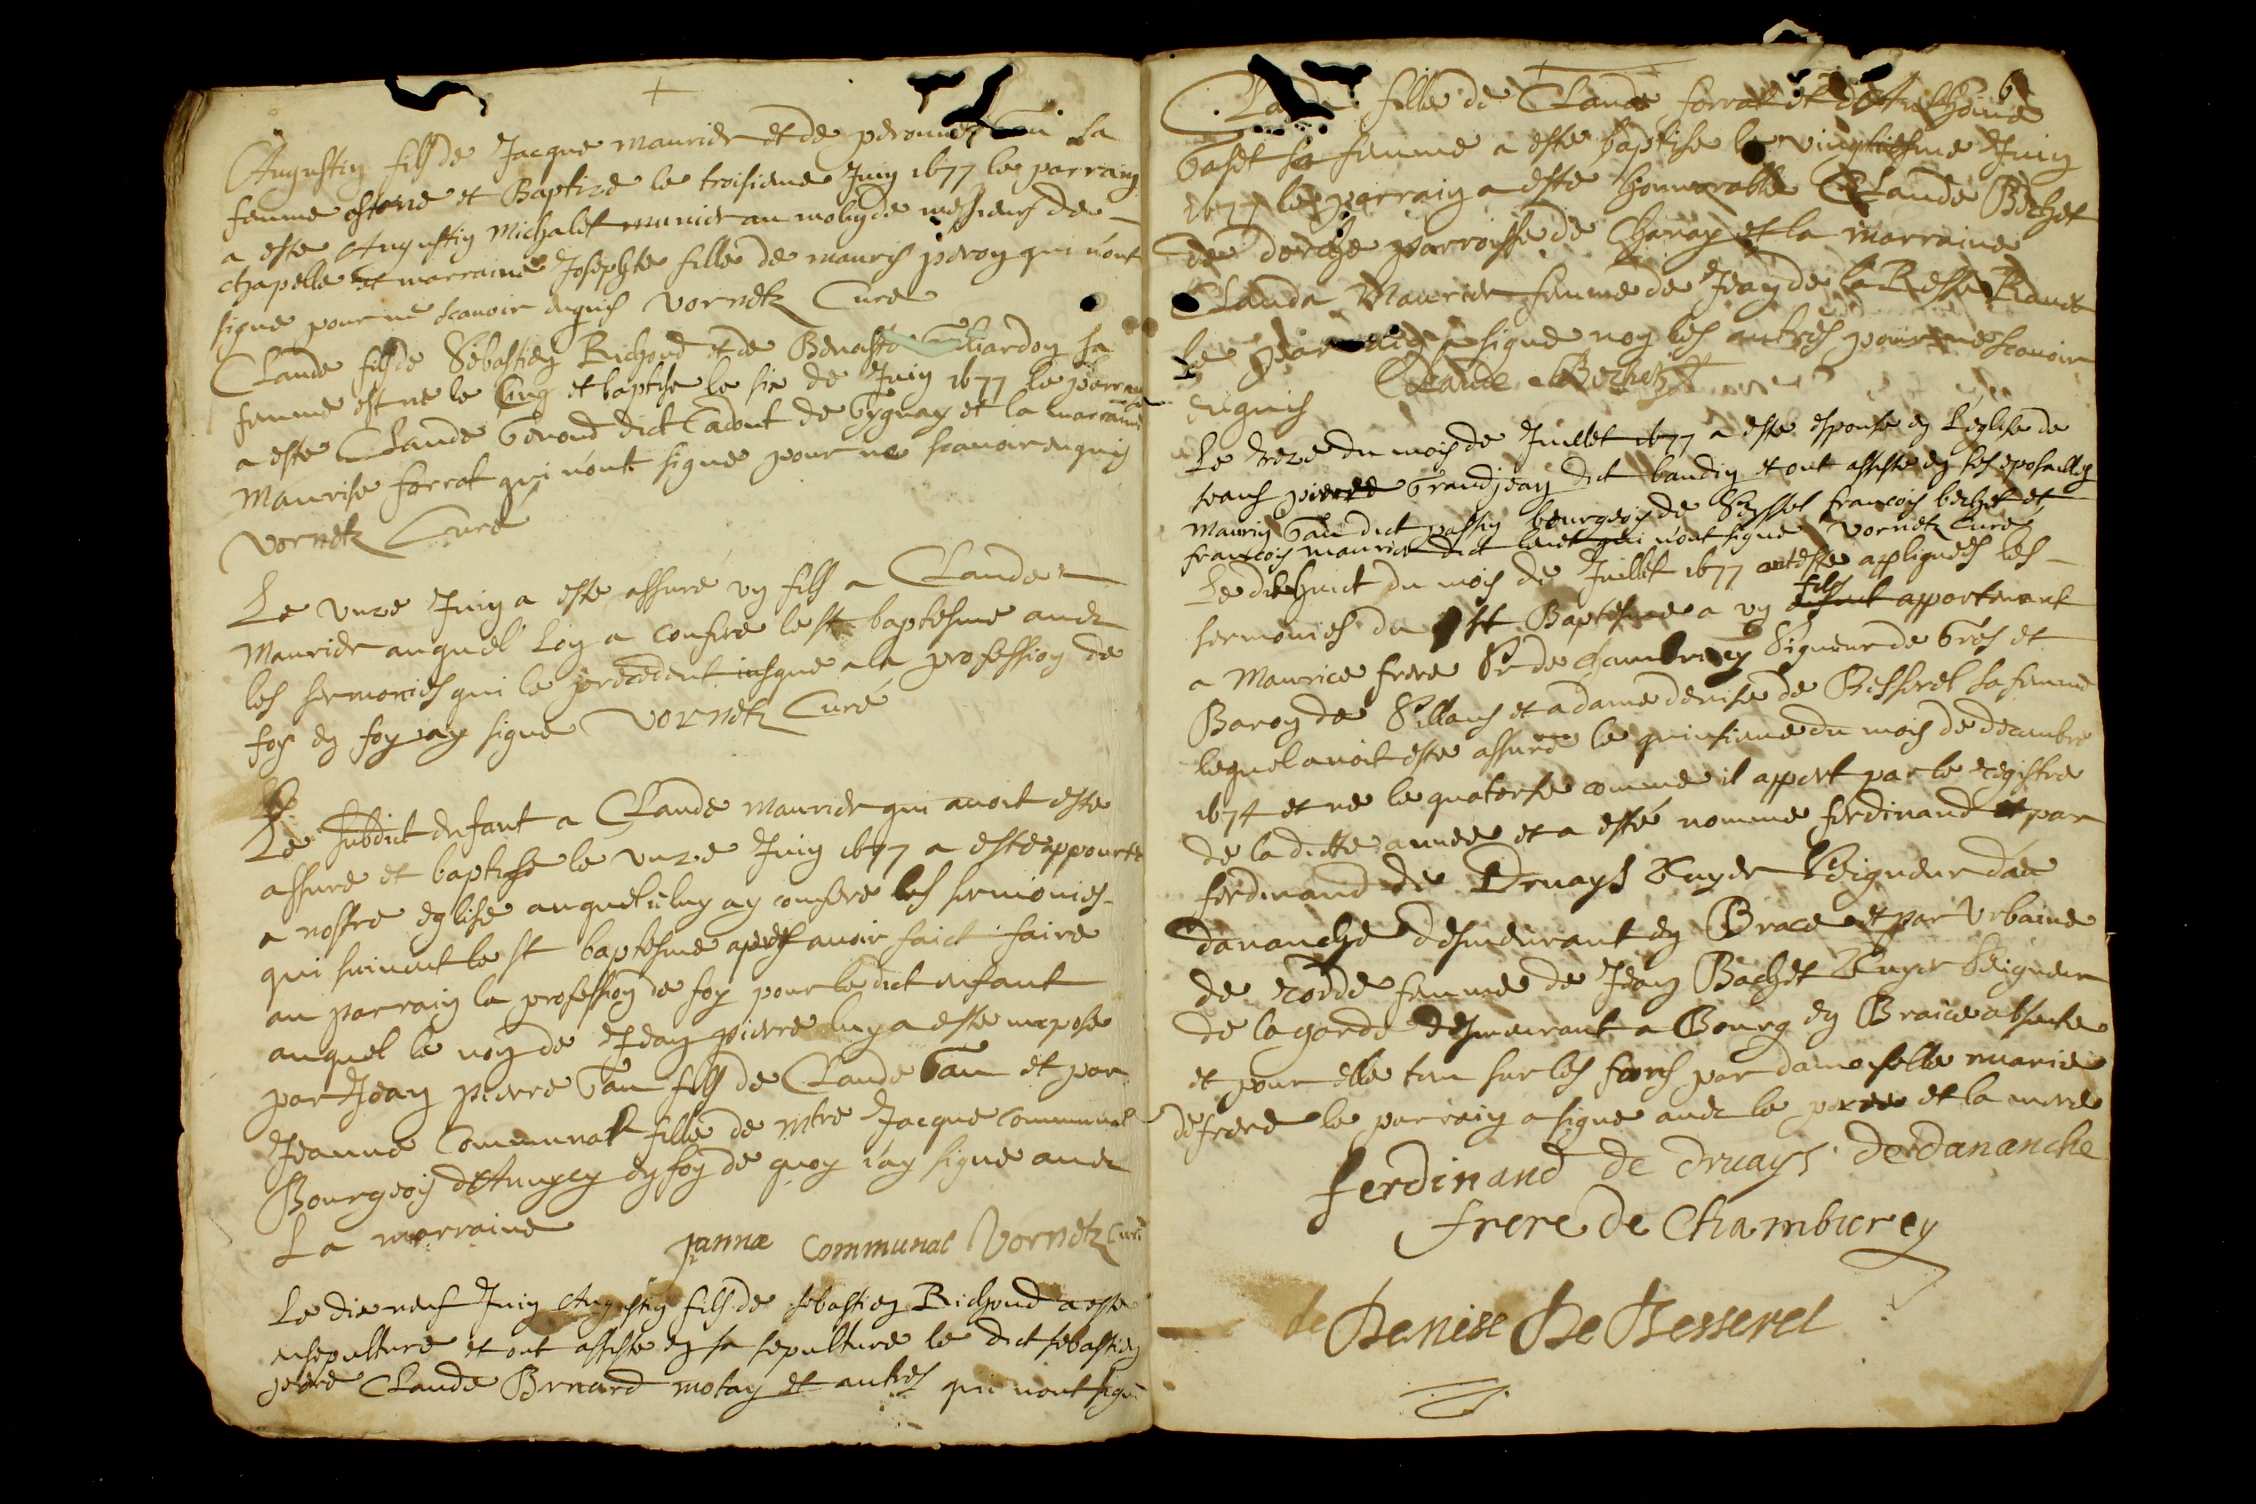 Augustin fils de Jacque maurier et de peronne Gau sa
femme est ne et Baptize le troisieme Juin 1677 le parrain
a este Augustin michalet munier au molin de messieurs de
chapelle et marraine Josephte fille de mauris peron qui n'ont
signe pour ne scavoir enquis Vornetz Cure
Claude fils de Sebastien Richond et de Benoiste Guiardon sa
femme est ne le Cinq et baptise le six de Juin 1677 le parrain
a este Claude Genoud dict Cadout de Gignay et la marraine
Maurise forrat qui n'ont signe pour ne scavoir enquis
Vornetz Curé
Le unze Juin a este assuré un fils a Claude
Maurier auquel l'on a confere le st baptesme avec
les sermonies qui le precedent iusque a la profession de
foy en foy iay signe Vornetz Curé
Le subdict enfant a Claude maurier qui avoit este
assure et baptise le unze Juin 1677 a este appourte
a nostre eglise auquel ie luy ay confere les sermonies
qui suivent le st baptesme apres avoir faict faire
au parrain la profession de foy pour le dict enfant
auquel le non de Jean pierre luy a este impose
par Jean pierre Gau fils de Claude Gau et par
Jeanne Communal fille de mtre Jacque Communal
Bourgeois d'Annecy en foy de quoy i'ay signe avec
La marraine
Janna Communal Vornetz Curé
Le dix neuf Juin Augustin fils de sebastien Richond a este
ensepulture et ont assiste en sa sepulture le dict sebastien
pere Claude Bernard motay et autres qui n'ont signe
6
Claude fille de Claude forrat et d'Anthoine
Gaset sa femme a este baptise le vingtiesme Juin
1677 le parrain a este honnorable Claude Bechet
de dorche parroisse de Chanay et la marraine
Clauda Maurier femme de Jean de la
Le parrain a signe non les autres pour ne scavoir
enquis Claude Bechetz
Le treze du mois de Juillet 1677 a este espouse en L'eglise de
ceans pierre Grandjean dict baudin et ont assiste en ses
Maurin Gau dict passin bourgeois de Seyssel francois bechet et
francois maurier dict qui n'ont signe Vornetz Curé
Le dixhuict du mois de Juillet 1677 ont este appliquees les
sermonies du st Baptesme a un enfant fils appartenant
a Maurice frere Sr de chamburcy Signeur de Gres et
Baron de Sillans et a dame denise de Besserel sa femme
lequel avoit este assure le quinsieme du mois de decembre
1674 et ne le quatorse comme il appert par le registre
de la ditte annee et a esté nomme ferdinand et par
ferdinand de Druays Seigneur
dananche desmeurant en Brace et par Urbaine
de femme de Jean Bachet Seigneur
de la garde desmeurant a Bourg en Braice absente
et pour elle tenu sur les fons par damoiselle marie
de frere le parrain a signe avec le pere et la mere
ferdinand de druays de dananche
frere de Chamburcy
de Denise De Besserel